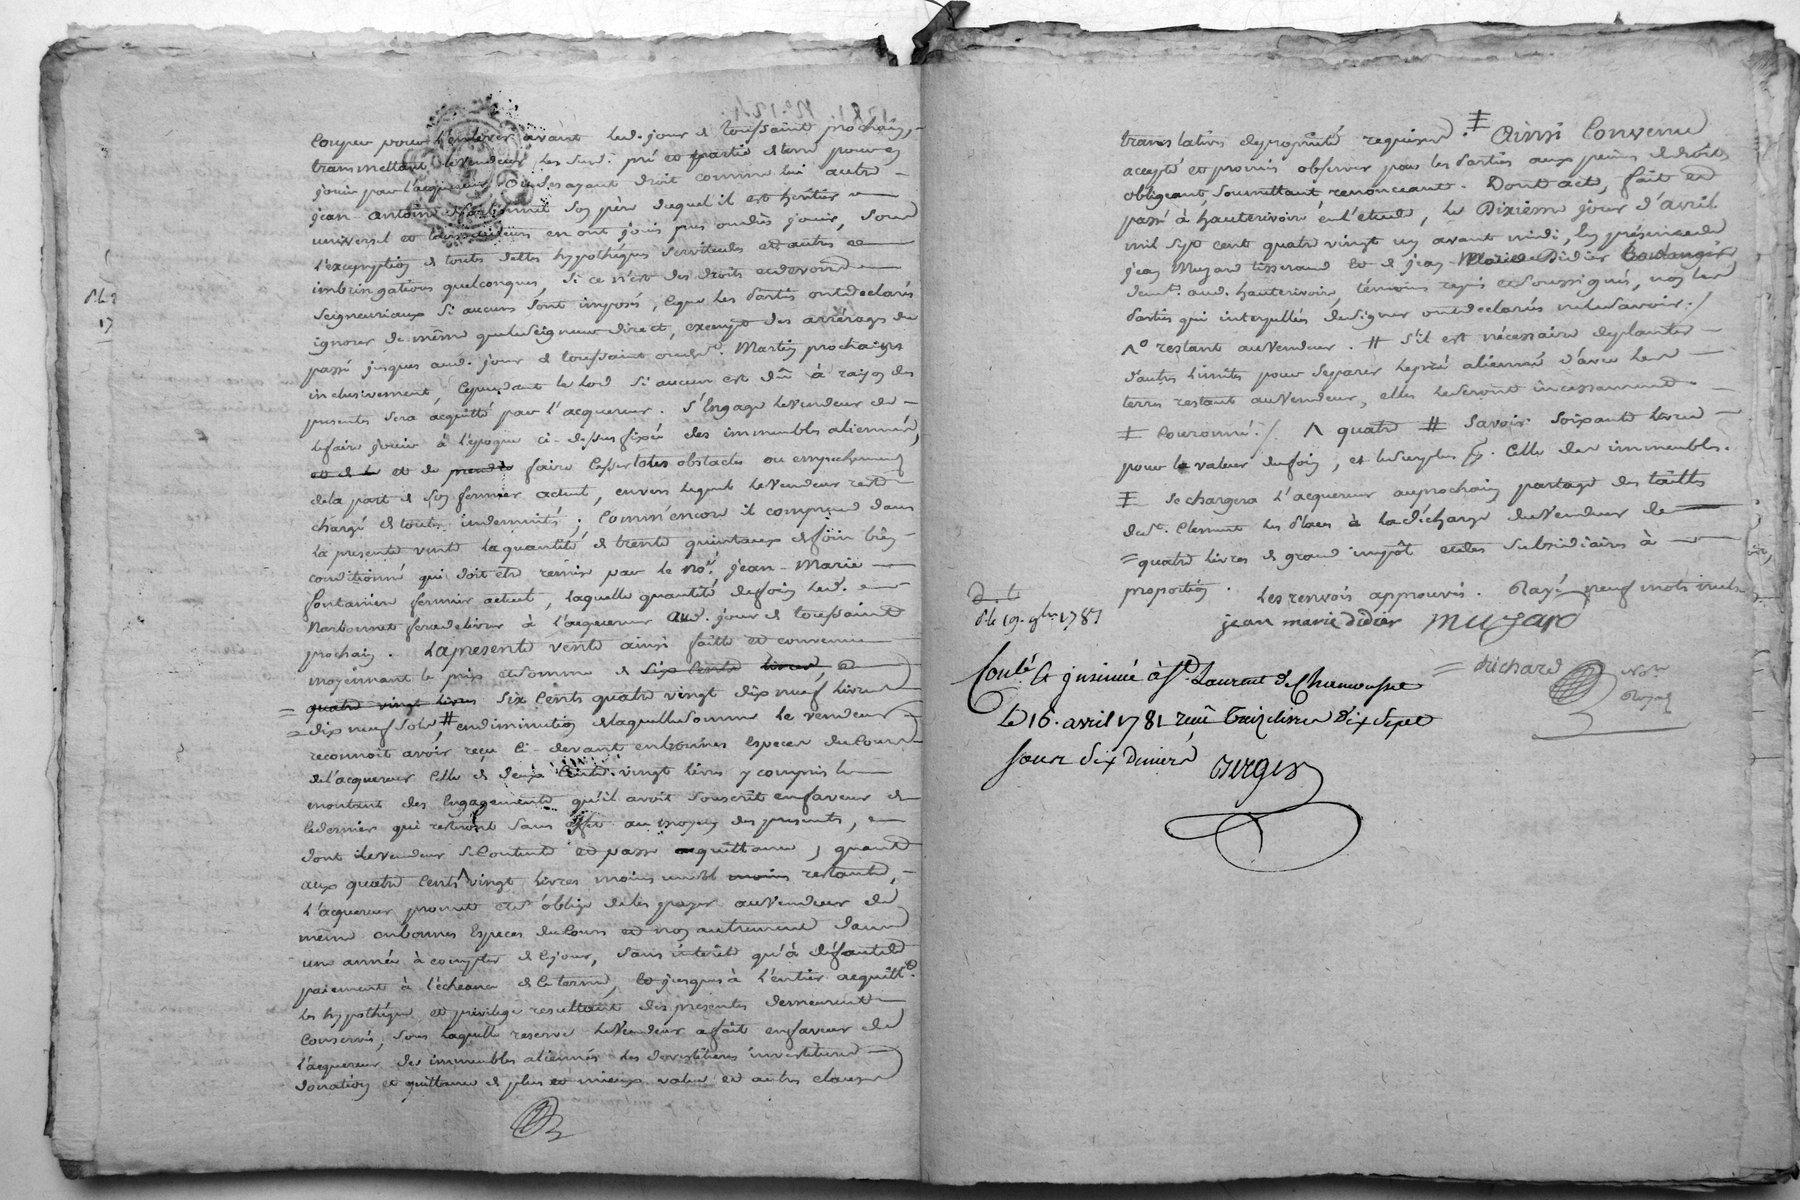 Couper pour l'enlever avant led. jour de toussaint prochain,
transmettant le vendeur les sud. pré et partie de terre pour en
jouir par l'acquereur ou les ayant droit comme lui autre
jean antoine Narbonnet son père duquel il est héritier
universel et leurs auteurs en ont joui pus ou dûs jouir, sous
l'exception de toutes dettes hypothéques servitudes et autres
imbringations quelconques, si ce n'est des droits et devoirs
seigneuriaux si aucuns sont imposés, ce que les parties ont declarés
ignorer de même que le seigneur direct, exempt des arrérages du
passé jusques aud. jour de toussaint ou de st. Martin prochains
inclusivement, cependant le lod si aucun est dû à raison des
presentes sera acquitté par l'acquereur. S'engage le vendeur de
le faire jouir à l'époque ci-dessus fixée des immeubles aliennés,
et de et de faire cesser tous obstacles ou empechement
de la part de son fermier actuel, envers lequel le vendeur reste
chargé de toutes indemnités; Comm'encore il comprend dans
la presente vente la quantité de trente quintaux de foin bien
conditionné qui doit etre remis par le no.é jean-Marie
fontanier fermier actuel, laquelle quantité de foin led.
Narbonnet fera delivrer à l'acquereur aud. jour de toussaint
prochain. La presente vente ainsi faitte et convenue
moyennant le prix et somme de six cents livres,
quatre vingt livres six cents quatre vingt dix neuf livres
= dix neuf sols, # en diminution de laquelle somme le vendeur
reconnoit avoir reçu ci-devant en bonnes especes du cours
de l'acquereur celle de deux cents vingt livres y compris le
montant des engagements qu'il avoit souscrit en faveur de
ce dernier qui resteront sans effet au moyen des presentes,
dont le vendeur se contente et passe quittance, quant
aux quatre cents ^ vingt livres moins un sol moins restante,
l'acquereur promet et s'oblige de les payer au vendeur de
même en bonnes especes du cours et non autrement dans
une année à compter de ce jour, sans intérêt qu'à défaut de
paiement à l'écheance de ce terme, et jusques à l'entier acquitt.t
les hypothéque et privilége resultant des presentes demeurent
conservés, sous laquelle reserve le vendeur a fait en faveur de
l'acquereur des immeubles aliennés les devestitures investitures
donation et quittance de plus et mieux value et autres clauses
translatives de proprieté requises. ‡ Ainsi Convenu
accepté et promis observer par les parties aux peines de droit
obligeant, soumettant renonceant. Dont acte, fait et
passé à hauterivoire en l'etude, le Dixieme jour d'avril
mil sept cent quatre vingt un avant midi, en présence de
jean Muzard tisserand et de jean Marie Didier Boulanger,
demt. aud. hauterivoire, témoins requis et soussignés, non les
parties qui interpellés de signer ont declarés ne le savoir./
^° restant au vendeur. # s'il est nécessaire de planter
d'autres limites pour separer le pré alienné d'avec les
terres restant au vendeur, elles le seront incessamment.
‡ Couronné./ ^ quatre # Savoir soixante livres
pour la valeur du foin, et le surplus celle des immeubles.
‡ Se chargera l'acquereur au prochain partage des tailles
de st. Clement les places à la décharge du vendeur de
= quatre livres de grand impôt et des subsidiaires à
proportion. Les renvois approuvés. Rayé neuf mots nuls
jean marie didier Muzard
Richard No.re Royal
Conté. et insinué à St. Laurent de Chamousset
Le 16. avril 1781 reçu treize livres Dix sept
sous six deniers